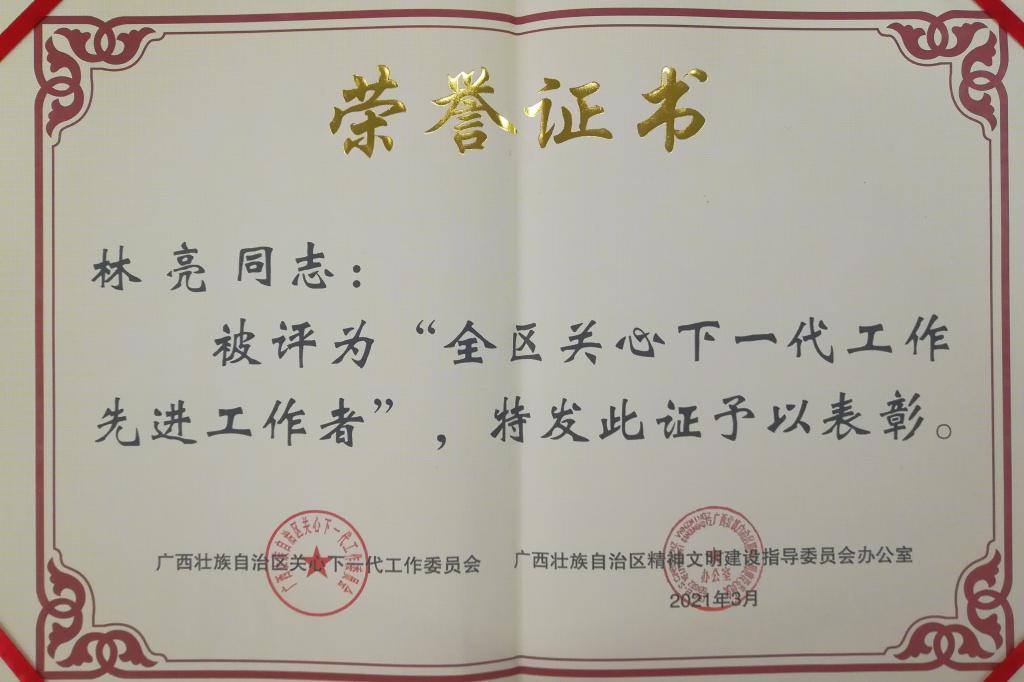 荣誉证书
林亮同志：
被评为“全区关心下一代工作
先进工作者”，特发此证予以表彰。
广西壮族自治区关心下一代工作委员会
广西壮族自治区精神文明建设指导委员会办公室
2021年3月
广西壮族自治区关心下一代工作委员会
办公室